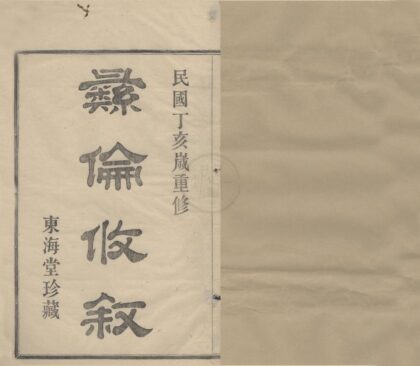 民國丁亥歲重修
彝倫攸叙
東海堂珍藏